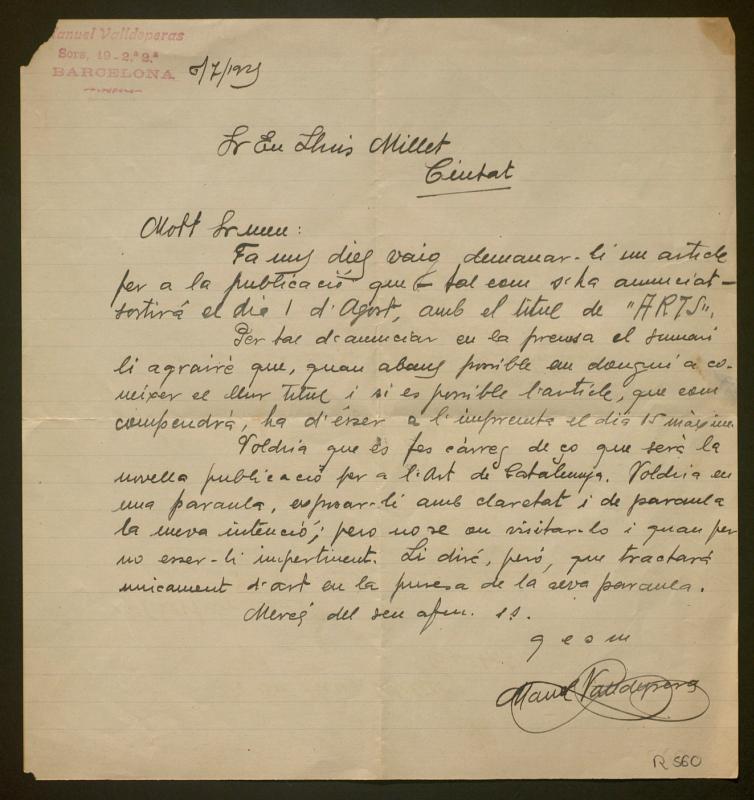 Manuel Valldeperas
Sors, 19-2.º 2.ª
BARCELONA
8/7/1925
Sr En Lluis Millet
Ciutat
Molt Sr meu:
Fa uns dies vaig demanar-li un article
per a la publicació que – tal com s'ha anunciat –
sortirá el dia 1 d'Agost, amb el titul de "ARTS".
Per tal d'anunciar en la premsa el sumari
li agrairé que, quan abans posible em dongui a co-
neixer el llur titul i si es posible l'article, que com
compendrá, ha d'ésser a l'imprenta el dia 15 máxim.
Voldria que es fes cárreg de ço que será la
novella publicació per a l'Art de Catalunya. Voldria en
una paraula, exposar-li amb claretat i de paraula
la meva intenció; pero no se on visitar-lo i quan per
no esser-li impertinent. Li diré, peró, que tractará
unicament d'art en la puresa de la seva paraula.
Mercé del seu afm. s.s.
q e s m
Manel Valldeperas
R 560